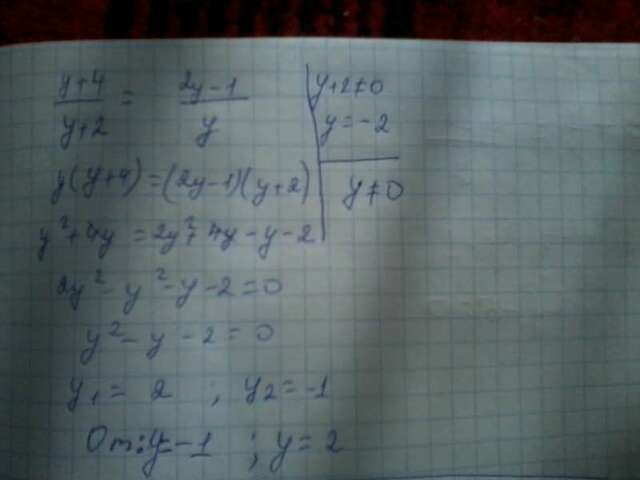 y+4/y+2 = 2y-1/y
y+2≠0
y=-2
y≠0
y(y+4)=(2y-1)(y+2)
y²+4y=2y²+4y-y-2
2y²-y²-y-2=0
y²-y-2=0
y₁=2 ; y₂=-1
От:y=-1 ; y=2